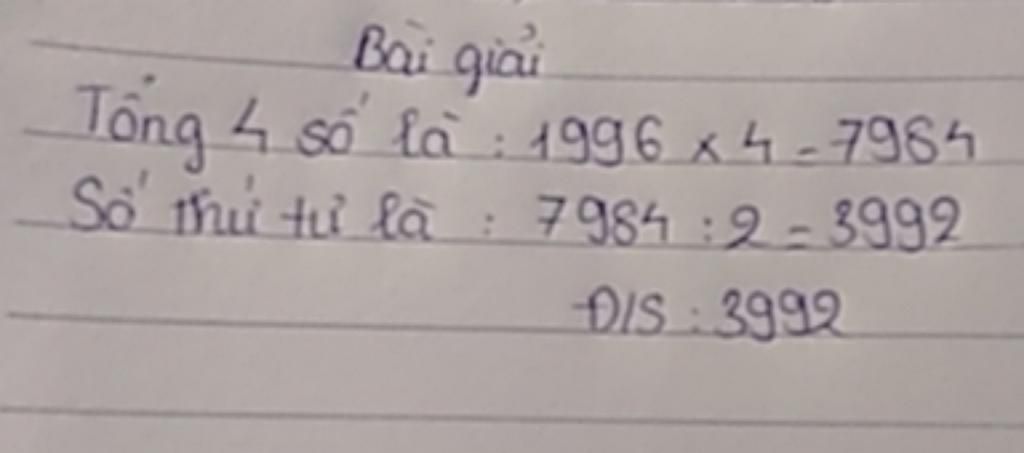 Bài giải
Tổng 4 số là : 1996 x 4 = 7984
Số thứ tư là : 7984 : 2 = 3992
Đ/S : 3992